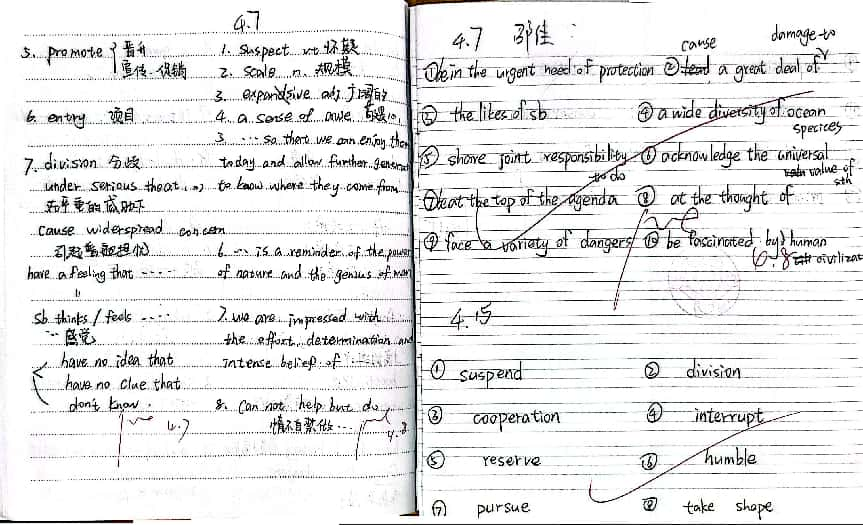 4.7
5. promote { 晋升
宣传、促销
6. entry 项目
7. division 分歧
under serious threat
在严重的威胁下
cause widespread concern
引起普遍担忧
have a feeling that ....
"
sb thinks / feels ....
感觉
have no idea that
have no clue that
don't know.
4.7
1. Suspect vt 怀疑
2. scale n. 规模
3. expansive adj.
4. a sense of awe
3 ... so that we can enjoy them
today and allow further generat
to know where they come from
6. ... is a reminder of the power
of nature and the genius of man
7. we are impressed with
the effort, determination and
intense belief of
8. can not help but do
情不自禁做...
4.8
4.7 邵佳:
cause damage to
①be in the urgent need of protection ② a great deal of
③ the likes of sb ④ a wide diversity of ocean
species
⑤ share joint responsibility to do ⑥ acknowledge the universal
value of
sth
⑦be at the top of the agenda ⑧ at the thought of
⑨ face a variety of dangers ⑩ be fascinated by human
civilizat
6.8
4.15
① suspend ② division
③ cooperation ④ interrupt
⑤ reserve ⑥ humble
⑦ pursue ⑧ take shape